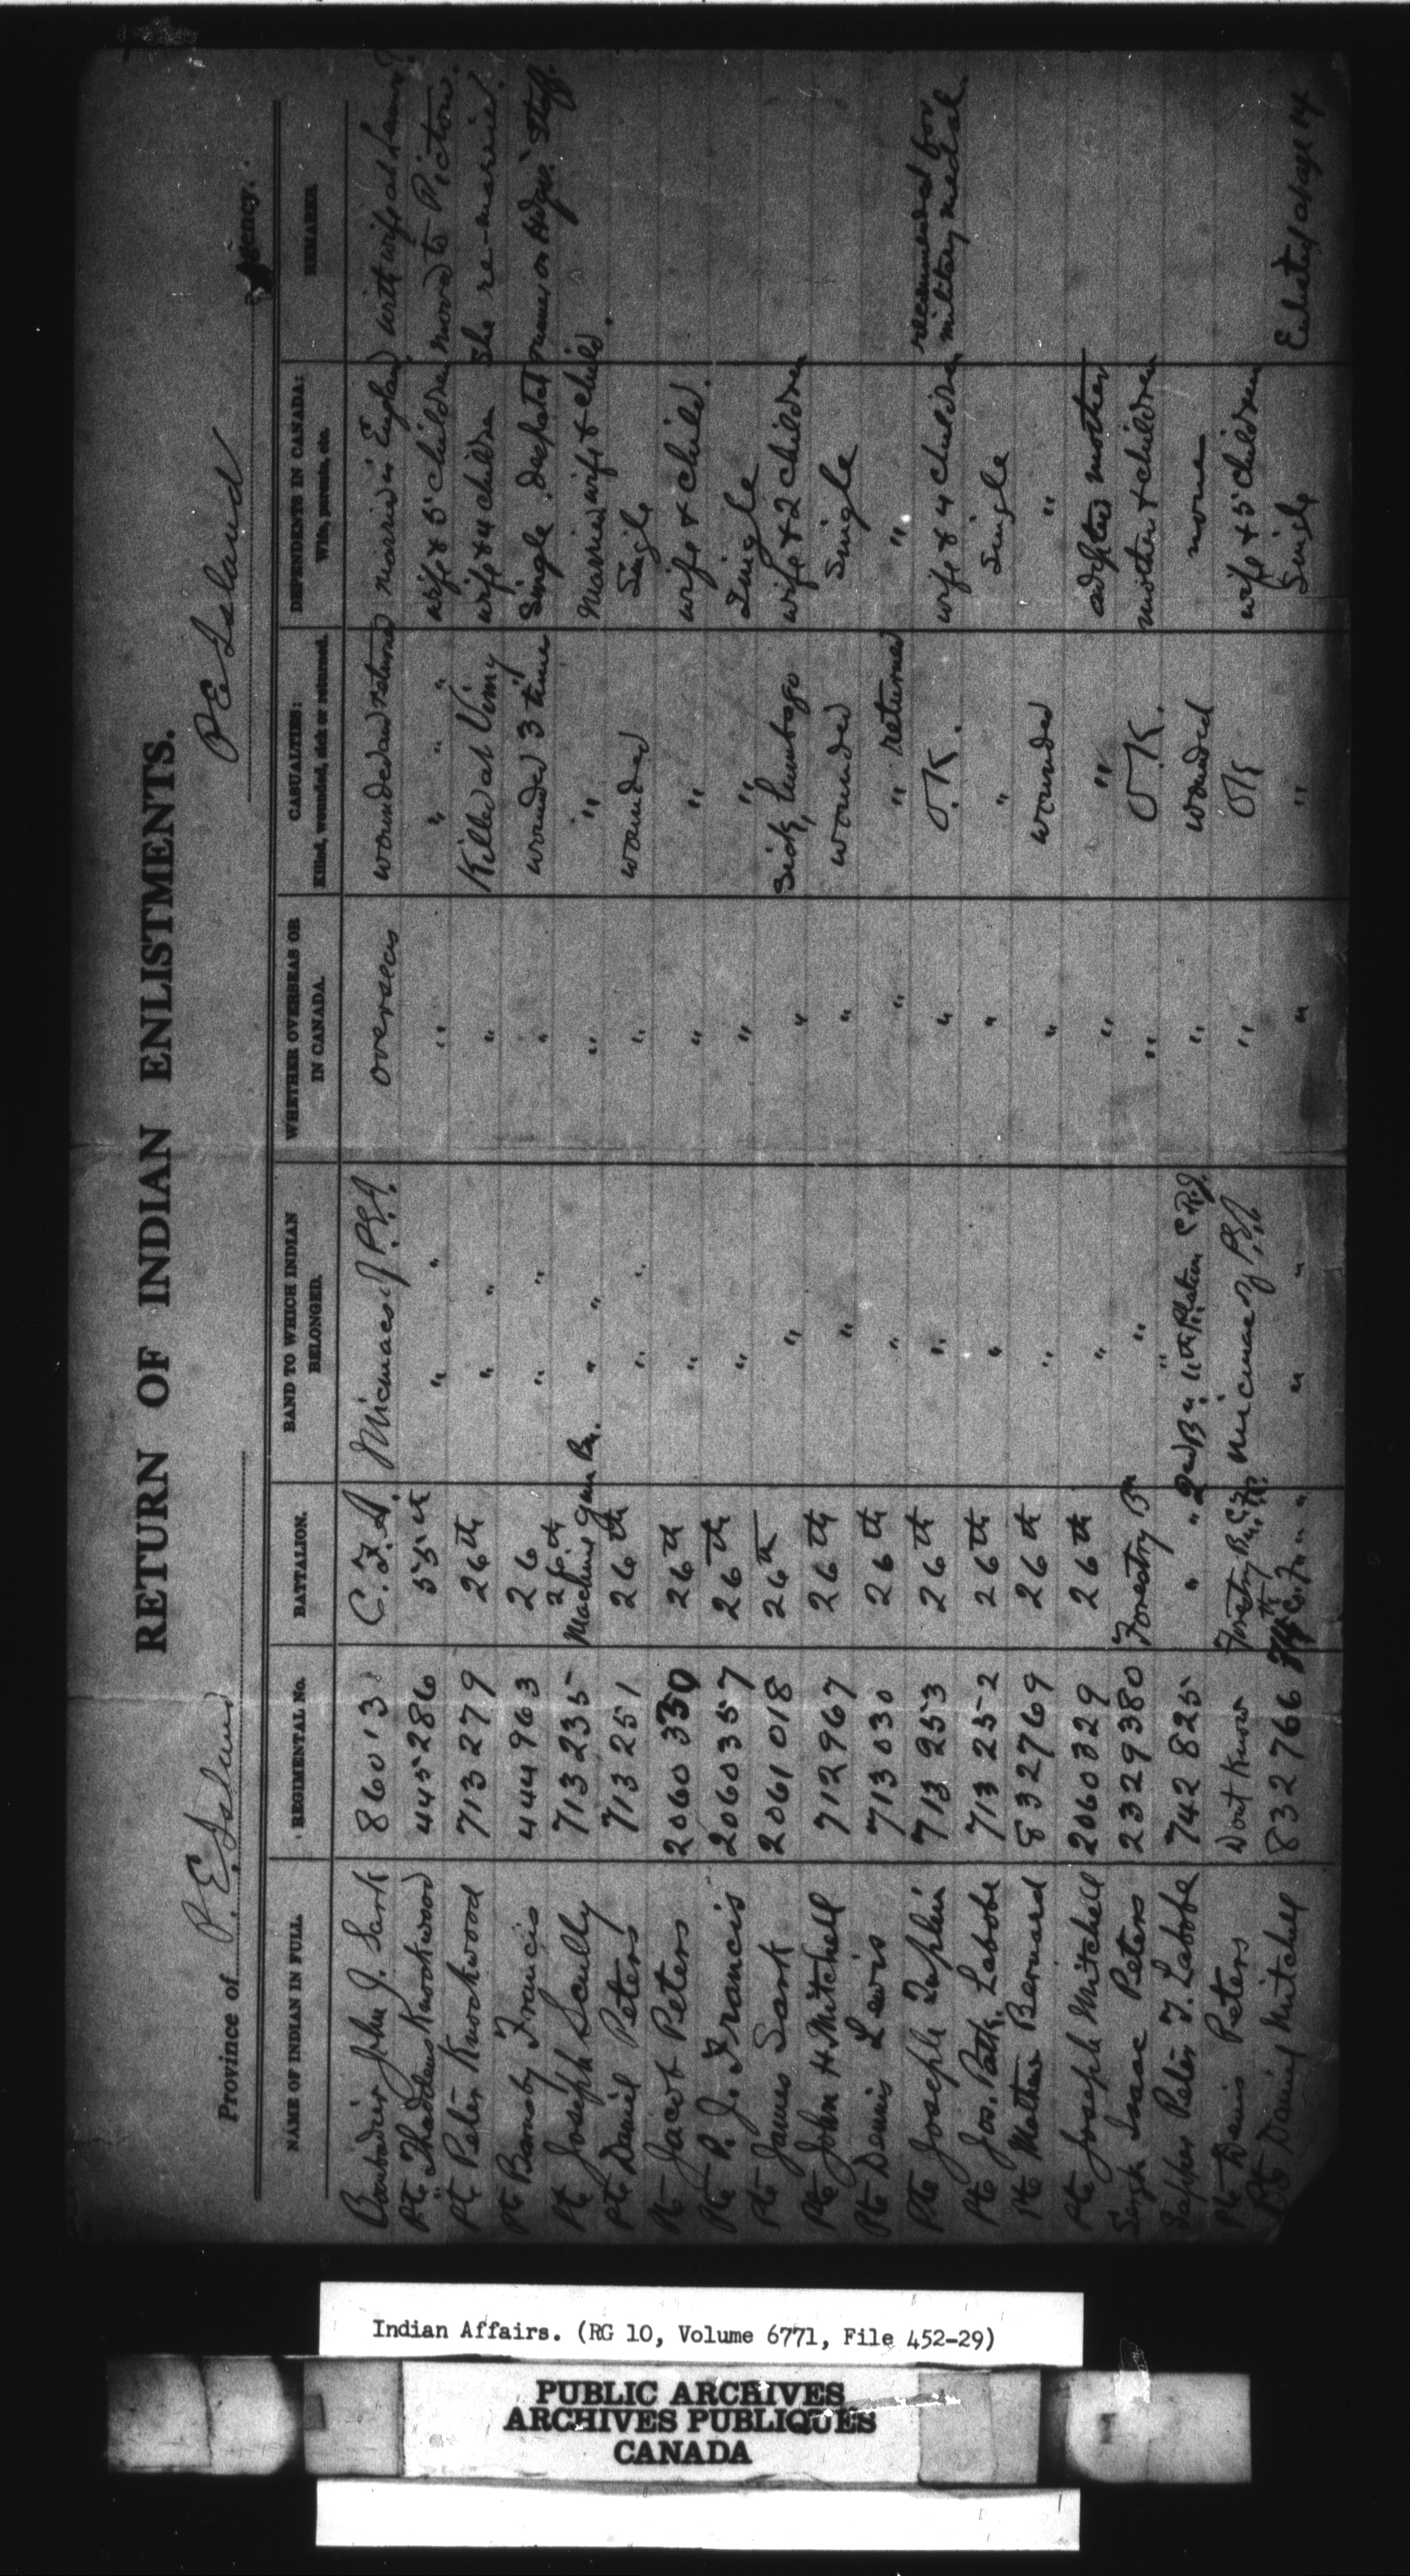 RETURN OF INDIAN ENLISTMENTS.
Province of P. E. Island P E Island Agency.
NAME OF INDIAN IN FULL. REGIMENTAL No. BATTALION. BAND TO WHICH INDIAN BELONGED. WHETHER OVERSEAS OR IN CANADA. CASUALTIES: Killed, wounded, sick or returned. DEPENDENTS IN CANADA: Wife, parents, etc. REMARKS.
Bombadier John J. Sark 86013 C.F.A. Micmacs of P.E.I. overseas wounded and returned married in England with wife at
Pte Thaddeus Knockwood 445286 55th " " " " " " wife & 5 children moved to Pictou.
Pte Peter Knockwood 713279 26th " " " Killed at Vimy wife & 4 children She re-married.
Pte Barnaby Francis 444963 26 " " " wounded 3 times Single despatch runner on Hdqrs. Staff.
Pte Joseph Scully 713235 26th Machine Gun Bn. " " " " Married wife & child.
Pte Daniel Peters 713251 26th " " " wounded Single
Pte Jacob Peters 2060330 26th " " " wife & child.
Pte P. J. Francis 2060357 26th " " " Single
Pte James Sark 2061018 26th " " Sick, lumbago wife & 2 children
Pte John H. Mitchell 712967 26th " " wounded Single
Pte Dennis Lewis 713030 26th " " " returned "
Pte Joseph Tuplin 713253 26th " " O.K. wife & 4 children recommended for military medal.
Pte Jos. Patk. Labobe 713252 26th " " " Single
Pte Mathew Bernard 832769 26th " " wounded "
Pte Joseph Mitchell 2060329 26th " " " adopted mother
Sergt Isaac Peters 2329380 Forestry Bn " " O.K. mother & children
Sapper Peter F. Labobe 742825 " " 2nd Bn 11th Platoon C.R.T. " wounded none
Pte Denis Peters Dont Know Forestry Bn Micmac of P.E.I. " OK wife & 5 children
Pte Daniel Mitchell 832766 " " " " Single Enlisted at age 14
Indian Affairs. (RG 10, Volume 6771, File 452-29)
PUBLIC ARCHIVES
ARCHIVES PUBLIQUES
CANADA